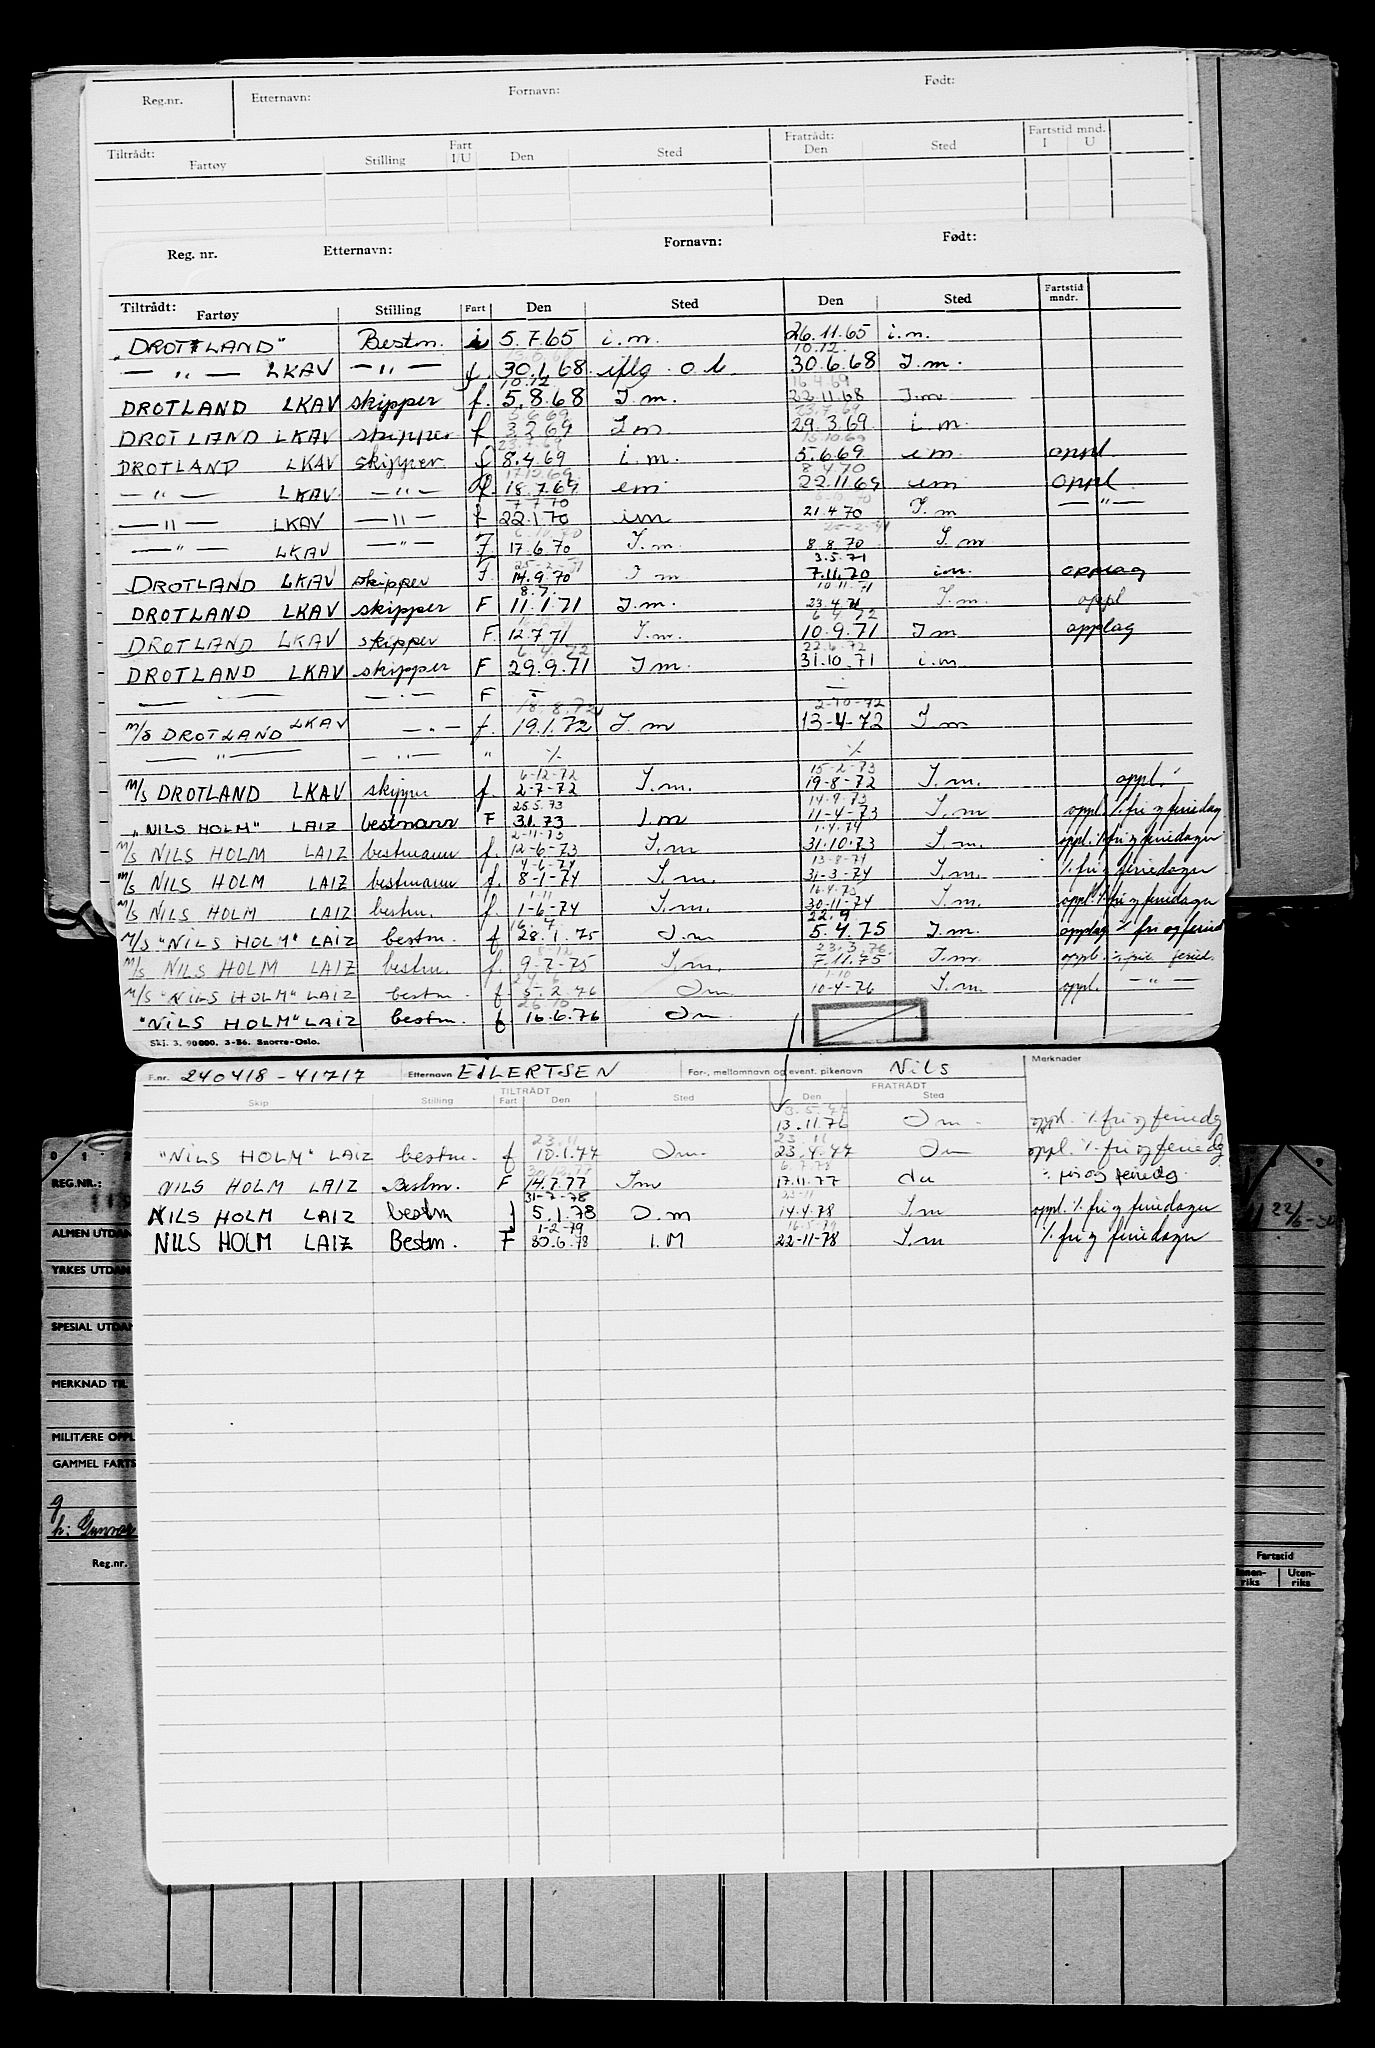 Reg.nr. Etternavn: Fornavn: Født:
Tiltrådt: Fartøy Stilling Fart I/U Den Sted Fratrådt: Den Sted Fartstid mnd. I U
Reg. nr. Etternavn: Fornavn: Født:
Tiltrådt: Fartøy Stilling Fart Den Sted Den Sted Fartstid mndr.
"DROTLAND" Bestm. i 5.7.65 i.m. 26.11.65 i.m.
10.12
— " — LKAV — " — f. 30.1.68 iflg. o.b. 30.6.68 I.m.
10.12 16.4.69
DROTLAND LKAV skipper f. 5.8.68 I.m. 22.11.68 I.m
5.6.69 23.7.69
DROTLAND LKAV skipper f 3.2.69 I m 29.3.69 i.m.
23.7.69 15.10.69
DROTLAND LKAV skipper f 8.4.69 i.m. 5.6.69 im oppl.
17.10.69 8.4.70
— " — LKAV — " — f. 18.7.69 im 22.11.69 im oppl
7.7.70 6.10.70
— " — LKAV — " — f 22.1.70 im 21.4.70 I.m — " —
6.10.70 25-2-71
— " — LKAV — " — F. 17.6.70 I.m. 8.8.70 I.m
25-2-71 3.5.71
DROTLAND LKAV skipper F. 14.9.70 I m 7.11.70 i.m. opplag
8.7. 10.11.71
DROTLAND LKAV skipper F 11.1.71 I.m. 23.4.71 I.m. oppl
6.4.72
DROTLAND LKAV skipper F. 12.7.71 I.m. 10.9.71 I m opplag
6.4.72 22.6.72
DROTLAND LKAV skipper F 29.9.71 I m. 31.10.71 i.m
— · — — · — F — —
18.8.72 2-10-72
m/s DROTLAND LKAV — " — f. 19.1.72 I.m 13-4-72 I m
— " — — " — " % %
6-12-72 15-2-73
m/s DROTLAND LKAV skipper f. 2-7-72 I.m. 19-8-72 I.m. oppl.
25.5.73 14.9.73
"NILS HOLM" LAIZ bestmann F 3.1.73 I.m 11-4-73 I.m oppl. % fri og feriedag
2-11-73 1.4.74
m/s NILS HOLM LAIZ bestmann f. 12-6-73 I.m 31.10.73 I m. oppl. % fri og feriedager
4-6-74 13-8-74
m/s NILS HOLM LAIZ bestmann f. 8-1-74 I.m. 31-3-74 I.m. % fri og feriedager
1-11 16.4.75
m/s NILS HOLM LAIZ bestm. f. 1-6-74 I.m. 30-11-74 I.m. oppl. % fri og feriedager
16.7 22.9
m/s "NILS HOLM" LAIZ bestm. f 28.1.75 I.m 5.4.75 I.m. opplag % fri og feried
8-12 23.3.76
m/s NILS HOLM LAIZ bestm. f. 9.7-75 I.m. 7.11.75 I.m. oppl. % fri feried.
24.6 1-10
m/s "NILS HOLM" LAIZ bestm. f 5.2.76 Im 10-4-76 I.m. oppl. — " —
26.10
"NILS HOLM" LAIZ bestm. f 16.6.76 Im
Skj. 3. 90000. 3-56. Snorre-Oslo.
F.nr. 240418-41717 Etternavn EILERTSEN For-, mellomnavn og event. pikenavn Nils Merknader
TILTRÅDT FRATRÅDT
Skip Stilling Fart Den Sted Den Sted
3.5.77
13.11.76 Im oppl. % fri og feriedg
23.11 23.11
"NILS HOLM" LAIZ bestm. f 10.1.77 Im. 23.4.77 Im oppl. % fri og feriedg
30.12.78 6.7.78
NILS HOLM LAIZ Bestm. F 14.7.77 Im 17.11.77 du % fri og feriedg
31-7-78 23-11
NILS HOLM LAIZ bestm f 5.1.78 I.m 14.4.78 I.m oppl. % fri og feriedager
1-2-79 16.5.79
NILS HOLM LAIZ Bestm. F 30.6.78 I.M 22-11-78 I.m % fri og feriedager
REG.NR.:
ALMEN UTDAN 22/6-
YRKES UTDAN
SPESIAL UTDAN
MERKNAD TIL
MILITÆRE OPPL
GAMMEL FARTS
Reg.nr. Fartstid
Innen-riks Uten-riks